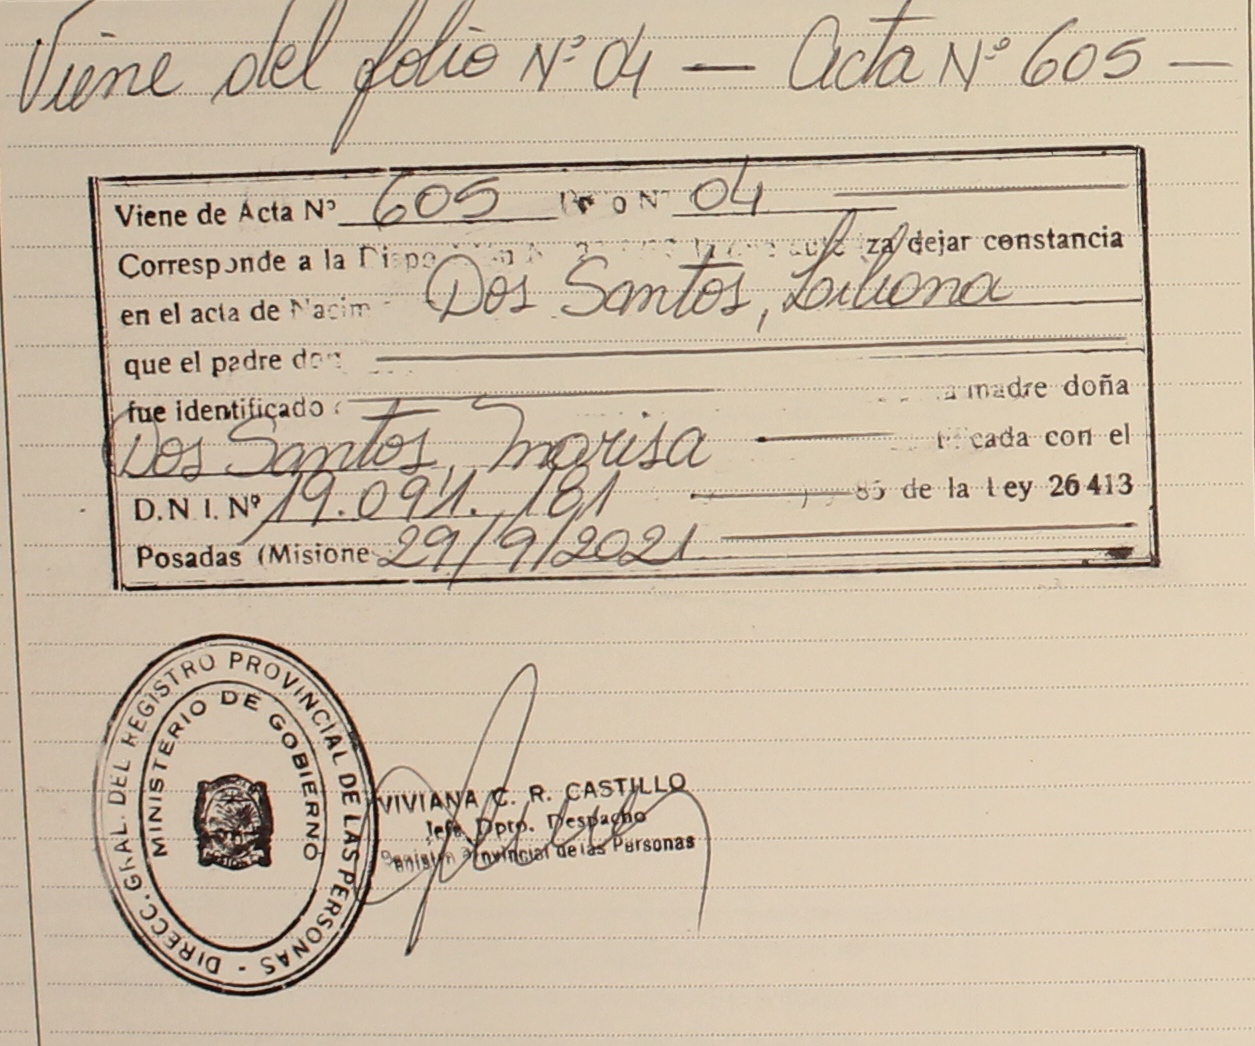 Viene del folio Nº 04 — Acta Nº 605 —
Viene de Acta Nº 605 04
Corresponde a la dejar constancia
en el acta de Dos Santos, Liliana
que el padre don
fue identificado madre doña
Dos Santos, Marisa con el
D.N I. Nº 19.091.181 85 de la Ley 26413
Posadas (Misione 29/9/2021
DIRECC. GRAL. DEL REGISTRO PROVINCIAL DE LAS PERSONAS -
MINISTERIO DE GOBIERNO
VIVIANA C. R. CASTILLO
Jefe Dpto. Despacho
Provincial de las Personas